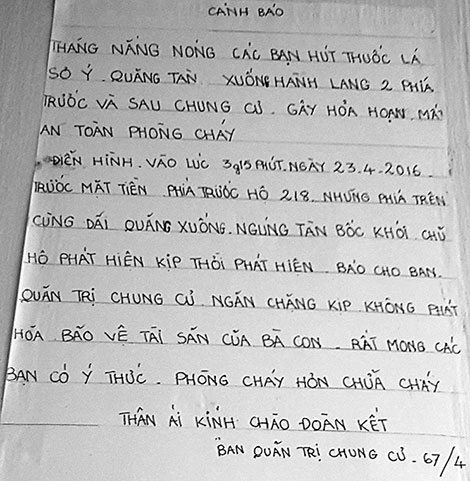 CẢNH BÁO
THÁNG NẮNG NÓNG CÁC BẠN HÚT THUỐC LÁ
SƠ Ý. QUĂNG TÀN XUỐNG HÀNH LANG 2 PHÍA
TRƯỚC VÀ SAU CHUNG CƯ. GÂY HỎA HOẠN. MẤ
AN TOÀN PHÒNG CHÁY
ĐIỂN HÌNH. VÀO LÚC 3g15 PHÚT. NGÀY 23.4-2016.
TRƯỚC MẶT TIỀN PHÍA TRƯỚC HỘ 218. NHỮNG PHÍA TRÊN
CŨNG DÃI QUĂNG XUỐNG. NGỪNG TÀN BỐC KHÓI CHỦ
HỘ PHÁT HIỆN KỊP THỜI PHÁT HIỆN. BÁO CHO BAN.
QUẢN TRỊ CHUNG CƯ NGĂN CHẶNG KỊP KHÔNG PHÁT
HỎA BẢO VỆ TÀI SẢN CỦA BÀ CON. RẤT MONG CÁC
BẠN CÓ Ý THỨC. PHÒNG CHÁY HƠN CHỮA CHÁY
THÂN ÁI KÍNH CHÀO ĐOÀN KẾT
BAN QUẢN TRỊ CHUNG CƯ. 67/4